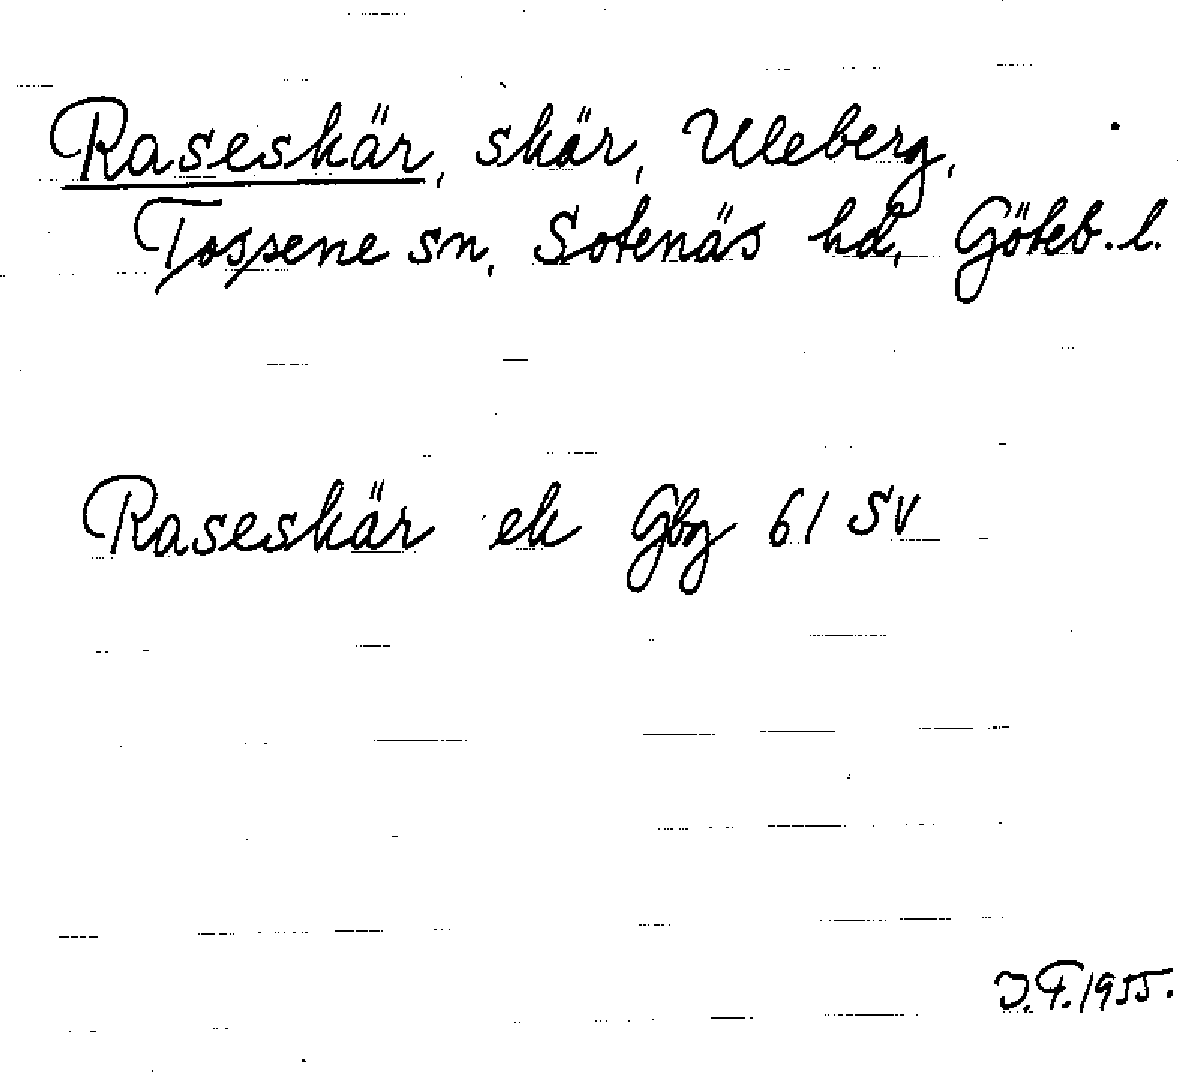 Raseskär, skär, Uleberg,
Tossene sn, Sotenäs hd, Göteb. l.
Raseskär ek Gbg 61 SV
J.F. 1955.